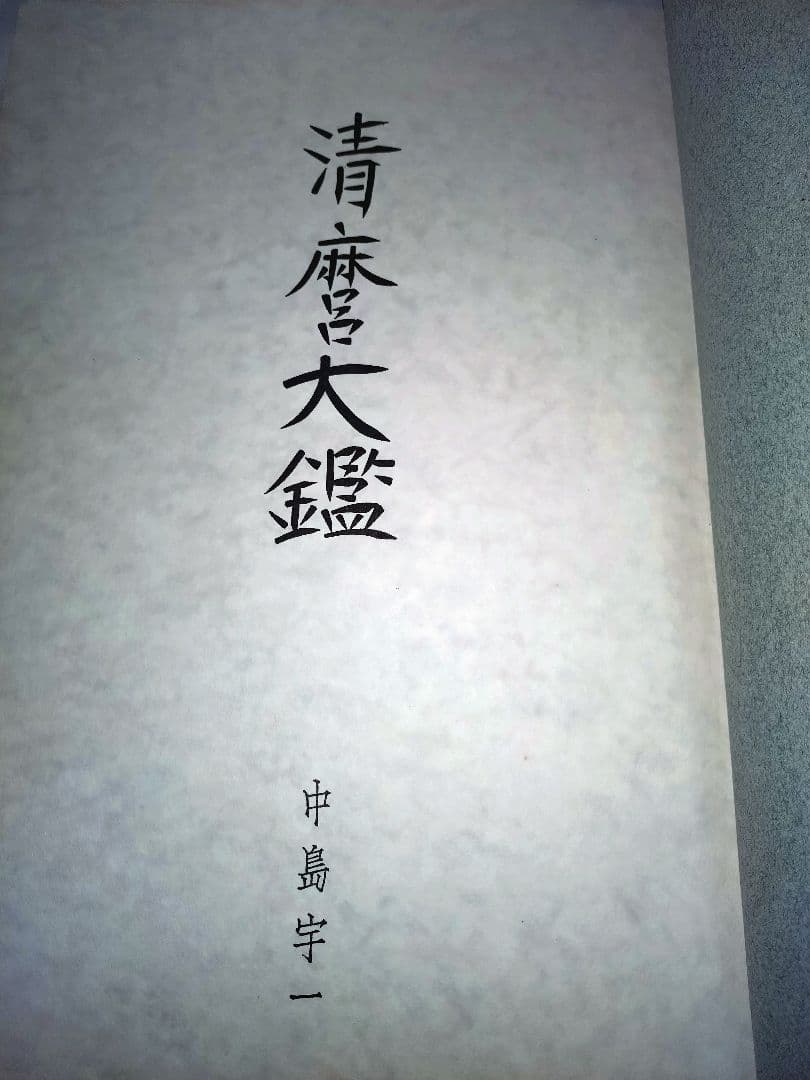 清麿大鑑
中島宇一